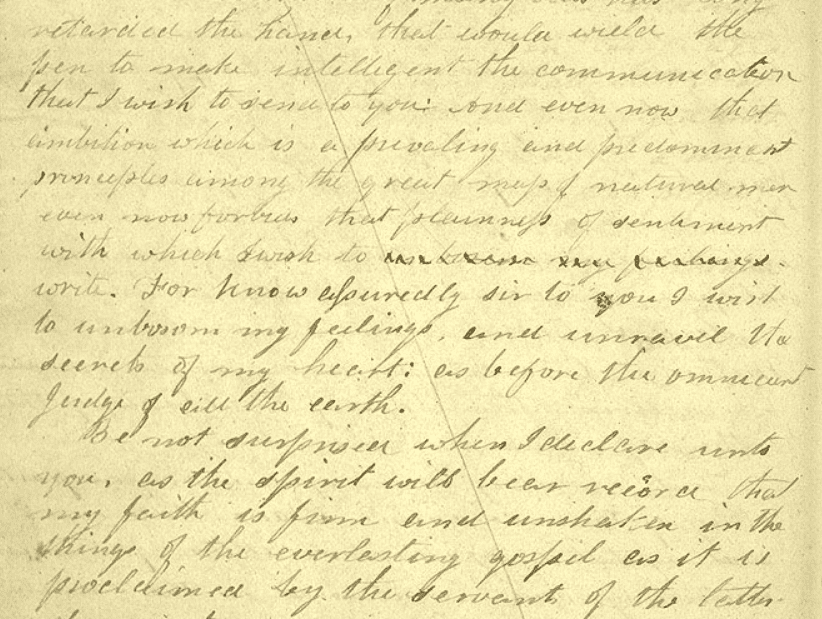 retarded the hand, that would wield the
pen to make intelligent the communication
that I wish to send to you: And even now that
ambition which is a prevaling and predominent
principles among the great mass of natural men
even now forbids that plainness of sentiment
with which I wish to unbosom my feelings.
write. For know assuredly sir to you I wish
to unbosom my feelings, and unravil the
secrets of my heart: as before the omnicient
Judge of all the earth.
Be not surprised when I declare unto
you, as the spirit will bear record that
my faith is firm and unshaken in the
things of the everlasting gospel as it is
proclaimed by the servants of the latter